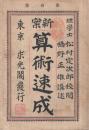 理學士 松村定次郎校閲
橋野正雄講述
新案
算術速成
東京 求光閣發行